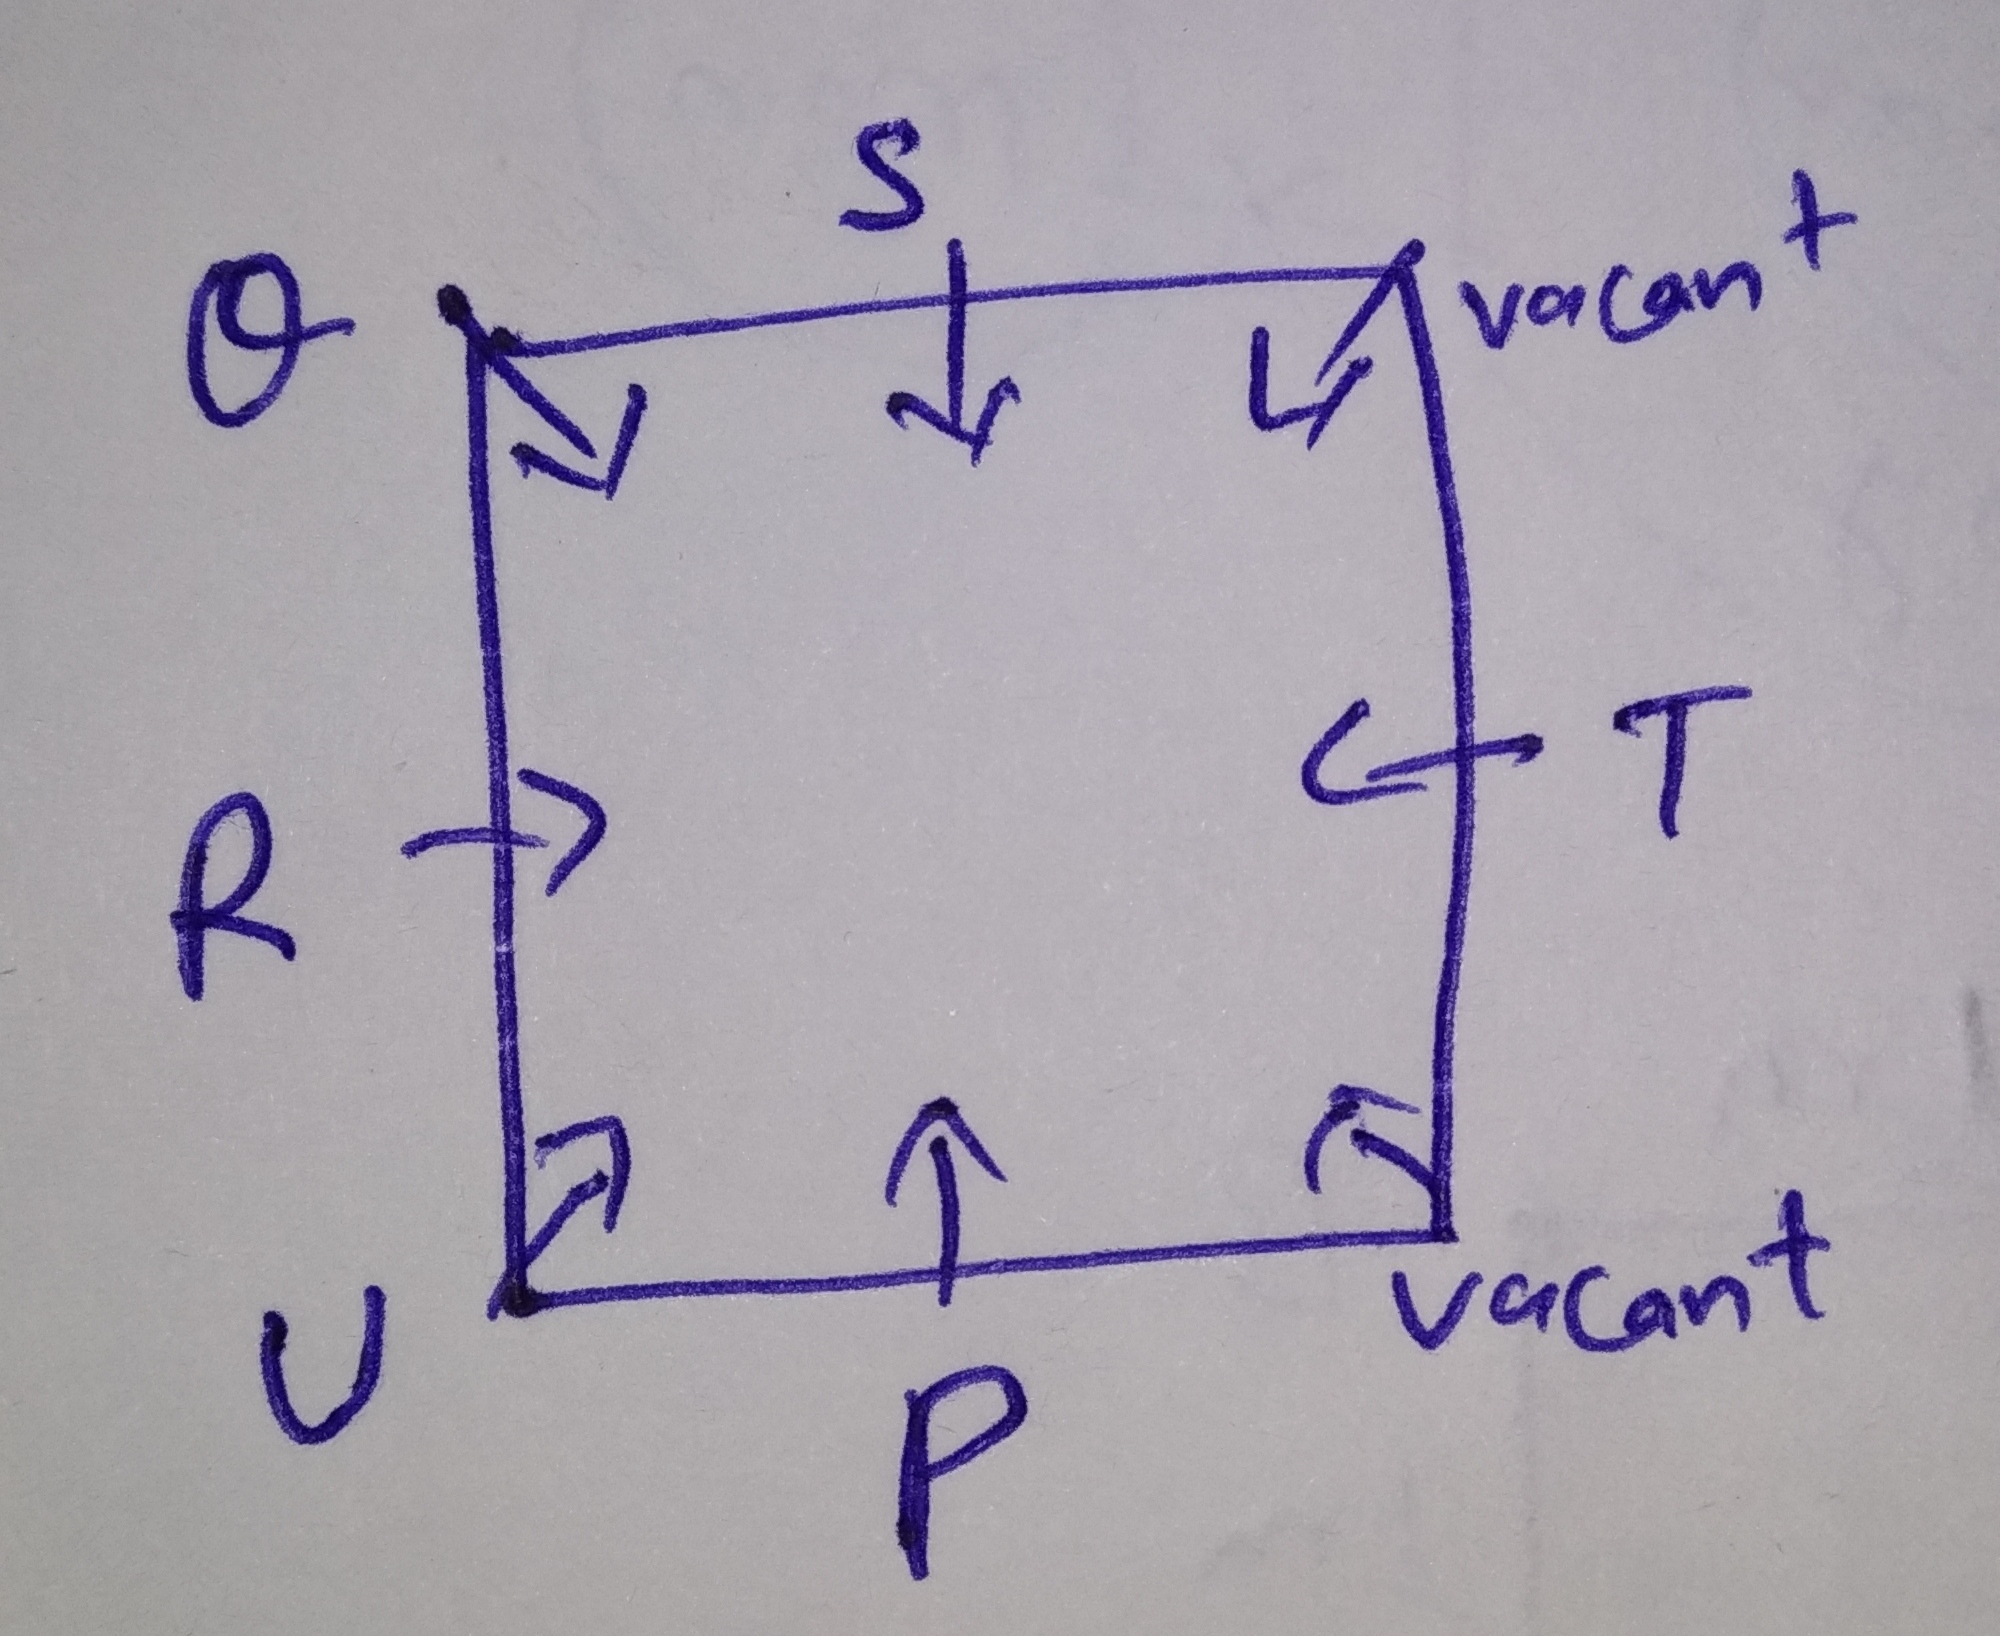 S
Q vacant
T
R
U vacant
P